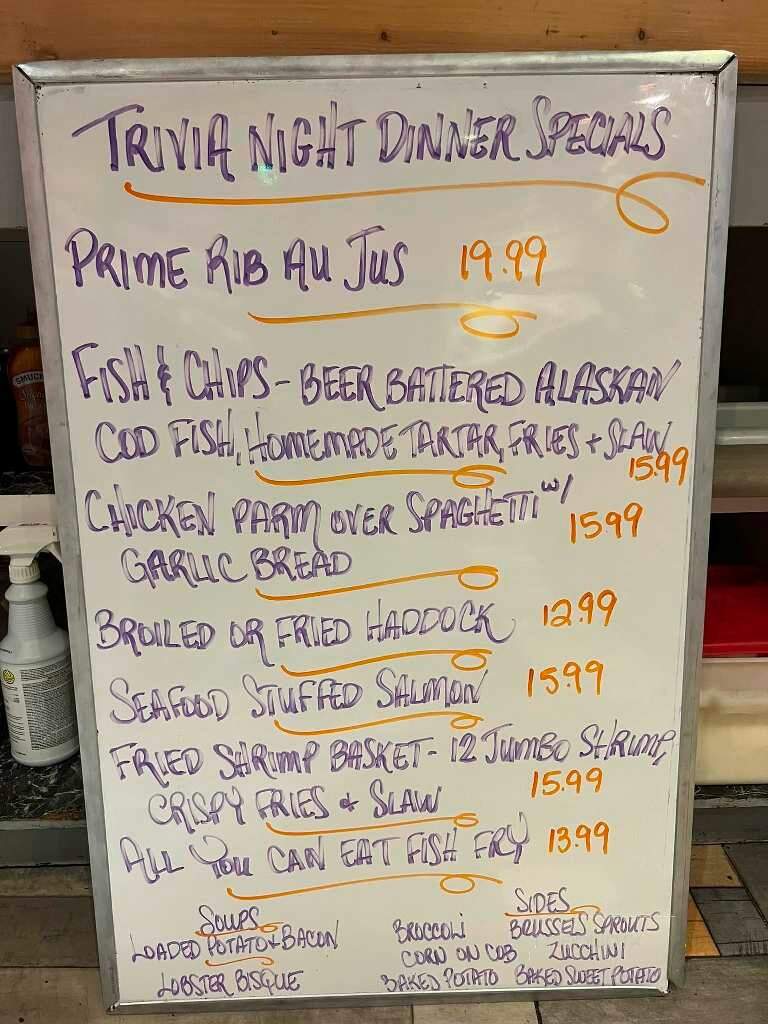 TRIVIA NIGHT DINNER SPECIALS
PRIME RIB AU JUS 19.99
FISH & CHIPS - BEER BATTERED ALASKAN
COD FISH, HOMEMADE TARTAR, FRIES + SLAW
15.99
CHICKEN PARM OVER SPAGHETTI w/ 15.99
GARLIC BREAD
BROILED OR FRIED HADDOCK 12.99
SEAFOOD STUFFED SALMON 15.99
FRIED SHRIMP BASKET - 12 JUMBO SHRIMP,
CRISPY FRIES & SLAW 15.99
ALL YOU CAN EAT FISH FRY 13.99
SOUPS
LOADED POTATO & BACON
LOBSTER BISQUE
SIDES
BROCCOLI BRUSSELS SPROUTS
CORN ON COB ZUCCHINI
BAKED POTATO BAKED SWEET POTATO
SMUCK